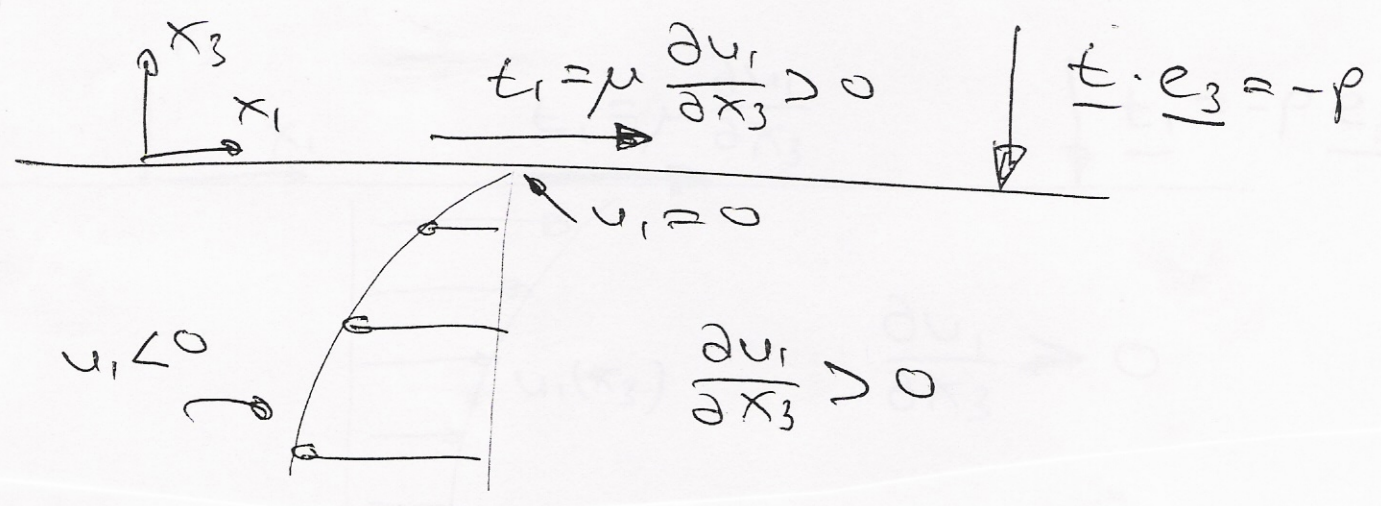 x₃
x₁
t₁ = μ ∂u₁/∂x₃ > 0
t · e₃ = -p
u₁ = 0
u₁ < 0
∂u₁/∂x₃ > 0